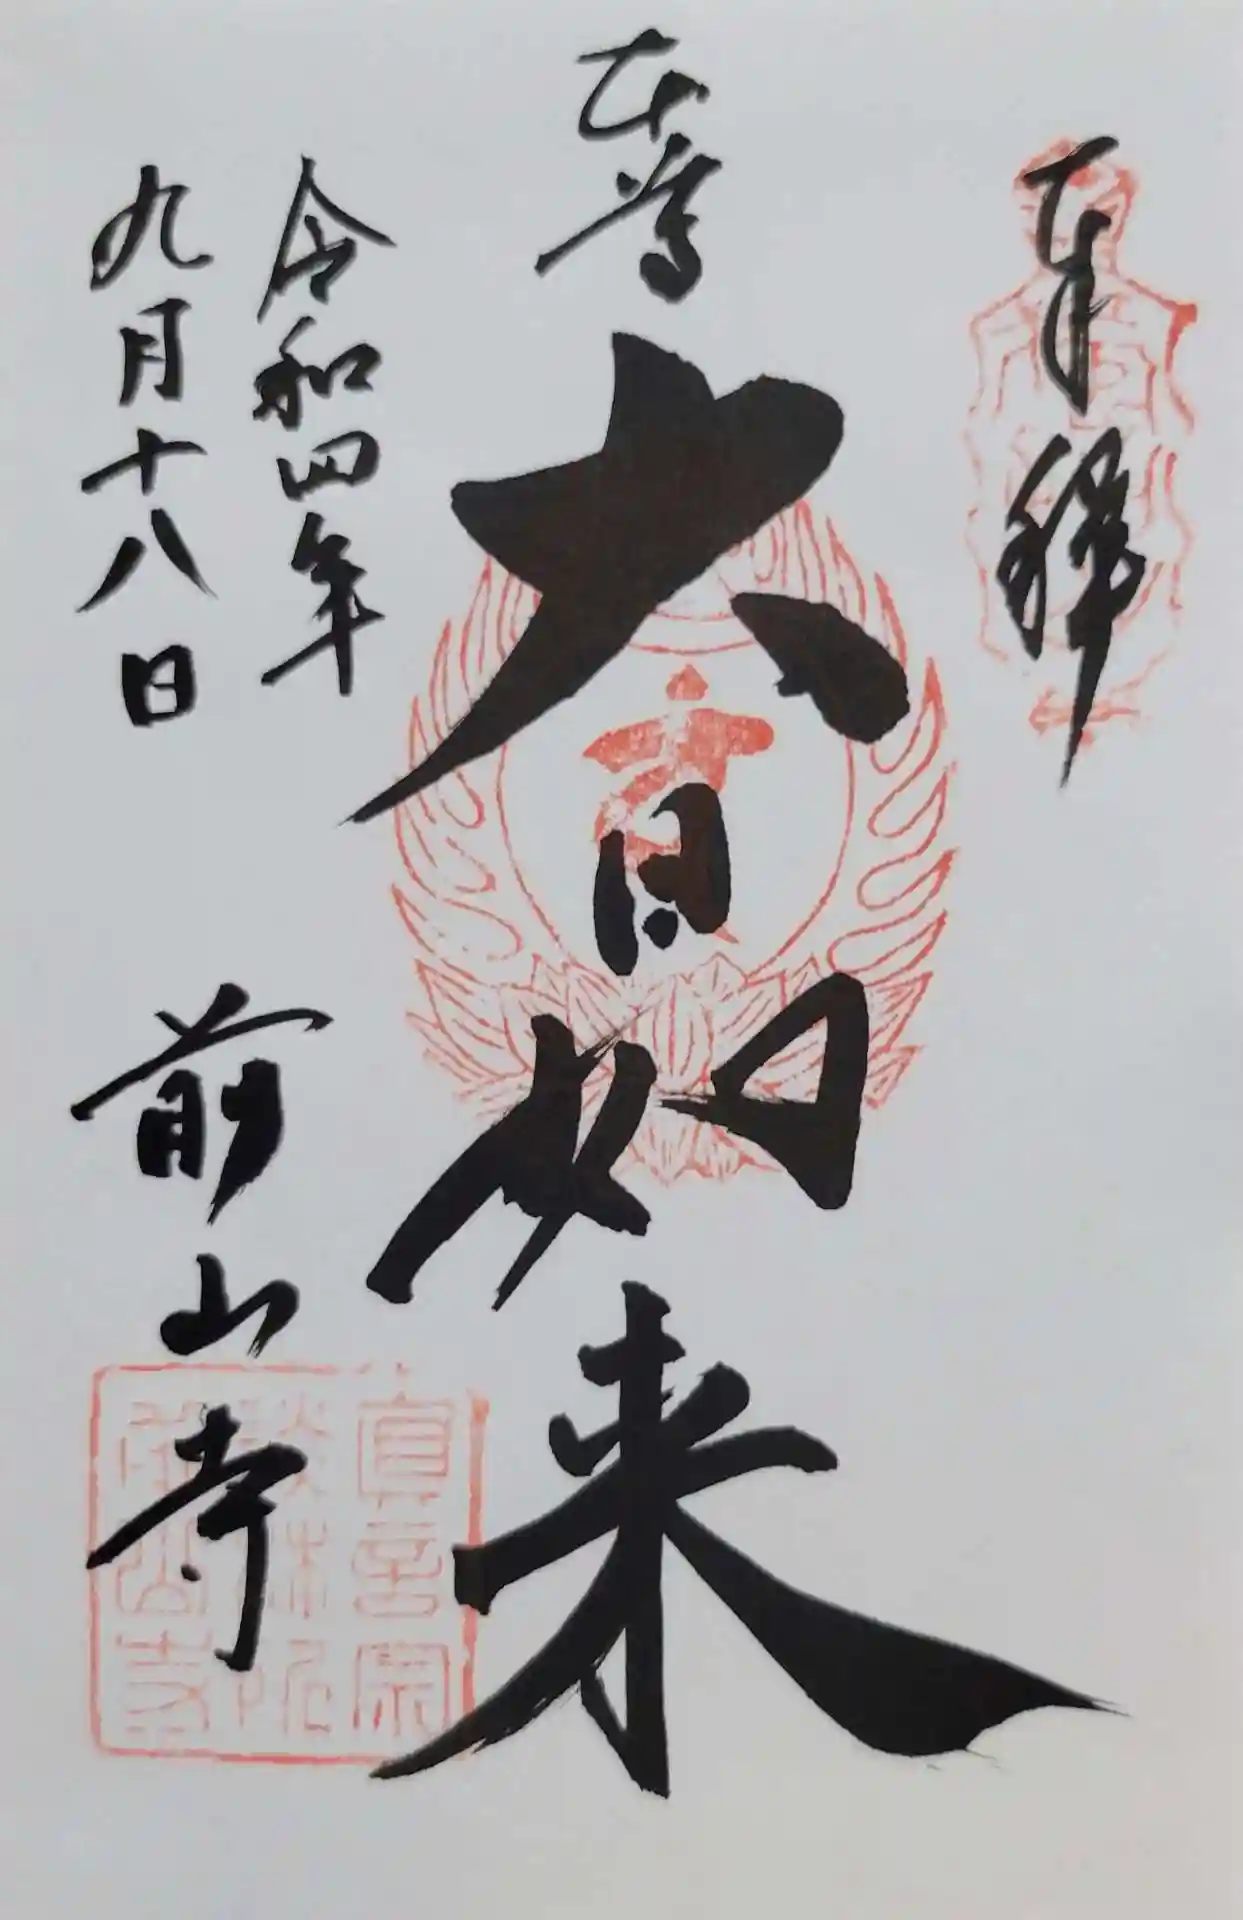 奉拝
本尊
大日如来
令和四年
九月十八日
前山寺
真言宗
談林所
前山寺